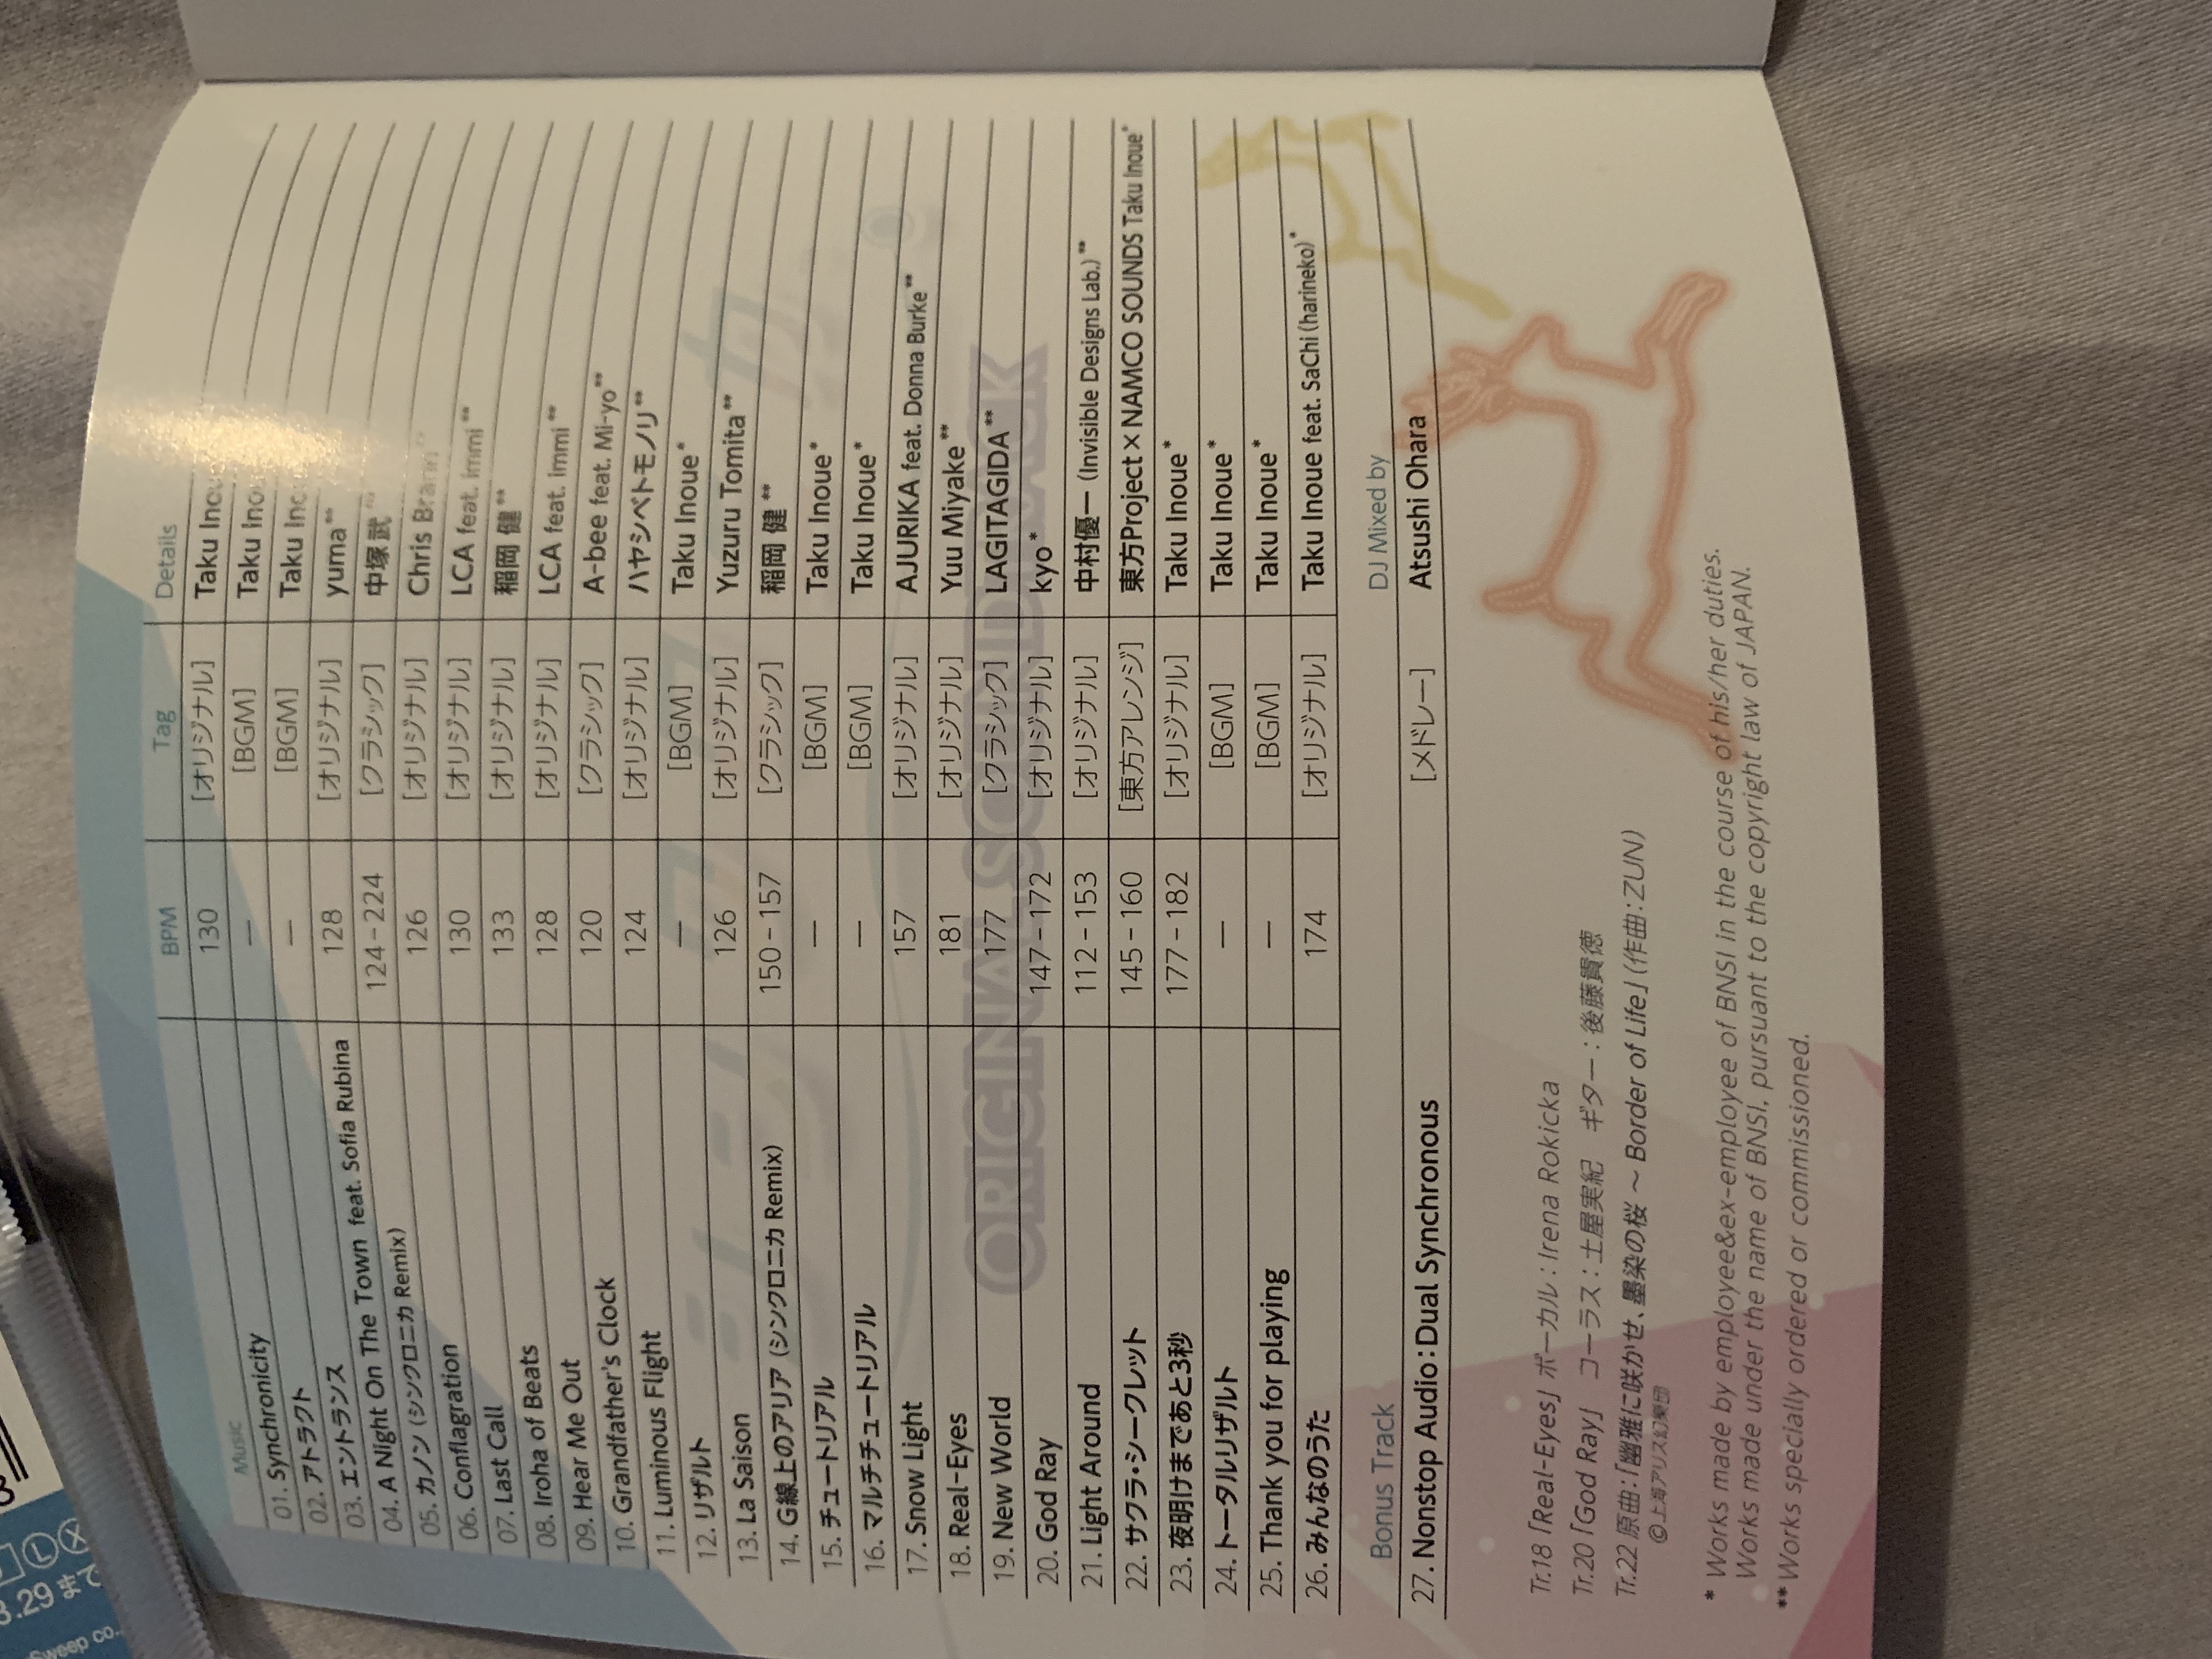 Music BPM Tag Details
01. Synchronicity 130 [オリジナル] Taku
02. アトラクト — [BGM] Taku
03. エントランス — [BGM] Taku
04. A Night On The Town feat. Sofia Rubina 128 [オリジナル] yuma**
05. カノン (シンクロニカ Remix) 124-224 [クラシック] 中塚武
06. Conflagration 126 [オリジナル] Chris
07. Last Call 130 [オリジナル] LCA feat. immi**
08. Iroha of Beats 133 [オリジナル] 稲岡 健**
09. Hear Me Out 128 [オリジナル] LCA feat. immi**
10. Grandfather's Clock 120 [クラシック] A-bee feat. Mi-yo**
11. Luminous Flight 124 [オリジナル] ハヤシベトモノリ**
12. リザルト — [BGM] Taku Inoue*
13. La Saison 126 [オリジナル] Yuzuru Tomita**
14. G線上のアリア (シンクロニカ Remix) 150-157 [クラシック] 稲岡 健**
15. チュートリアル — [BGM] Taku Inoue*
16. マルチチュートリアル — [BGM] Taku Inoue*
17. Snow Light 157 [オリジナル] AJURIKA feat. Donna Burke**
18. Real-Eyes 181 [オリジナル] Yuu Miyake**
19. New World 177 [クラシック] LAGITAGIDA**
20. God Ray 147-172 [オリジナル] kyo*
21. Light Around 112-153 [オリジナル] 中村優一 (Invisible Designs Lab.)**
22. サクラ・シークレット 145-160 [東方アレンジ] 東方Project×NAMCO SOUNDS Taku Inoue*
23. 夜明けまであと3秒 177-182 [オリジナル] Taku Inoue*
24. トータルリザルト — [BGM] Taku Inoue*
25. Thank you for playing — [BGM] Taku Inoue*
26. みんなのうた 174 [オリジナル] Taku Inoue feat. SaChi (harineko)*
Bonus Track DJ Mixed by
27. Nonstop Audio:Dual Synchronous [メドレー] Atsushi Ohara
Tr.18「Real-Eyes」ボーカル:Irena Rokicka
Tr.20「God Ray」 コーラス:土屋実紀 ギター:後藤貴徳
Tr.22 原曲:「幽雅に咲かせ、墨染の桜 ～ Border of Life」(作曲:ZUN)
©上海アリス幻樂団
* Works made by employee&ex-employee of BNSI in the course of his/her duties.
Works made under the name of BNSI, pursuant to the copyright law of JAPAN.
**Works specially ordered or commissioned.
シンクロニカ
ORIGINAL SOUND TRACK
3.29まで
Sweep co.,